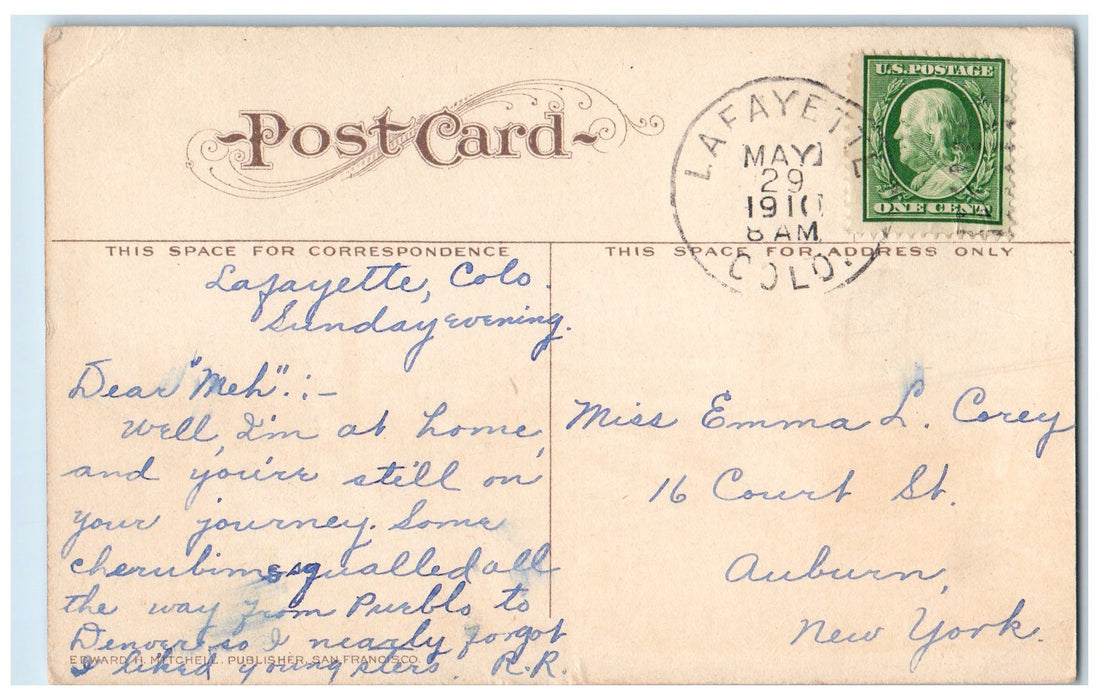 Post Card
U.S. POSTAGE
ONE CENT
LAFAYETTE
MAY
29
1910
8 AM
COLO.
THIS SPACE FOR CORRESPONDENCE
THIS SPACE FOR ADDRESS ONLY
Lafayette, Colo.
Sunday evening.
Dear "Meh":-
Well, I'm at home,
and you're still on
your journey. Some
cherubims squalled all
the way from Pueblo to
Denver so I nearly forgot
I liked youngsters. R.R.
EDWARD H. MITCHELL, PUBLISHER, SAN FRANCISCO.
Miss Emma L. Corey
16 Court St.
Auburn,
New York.